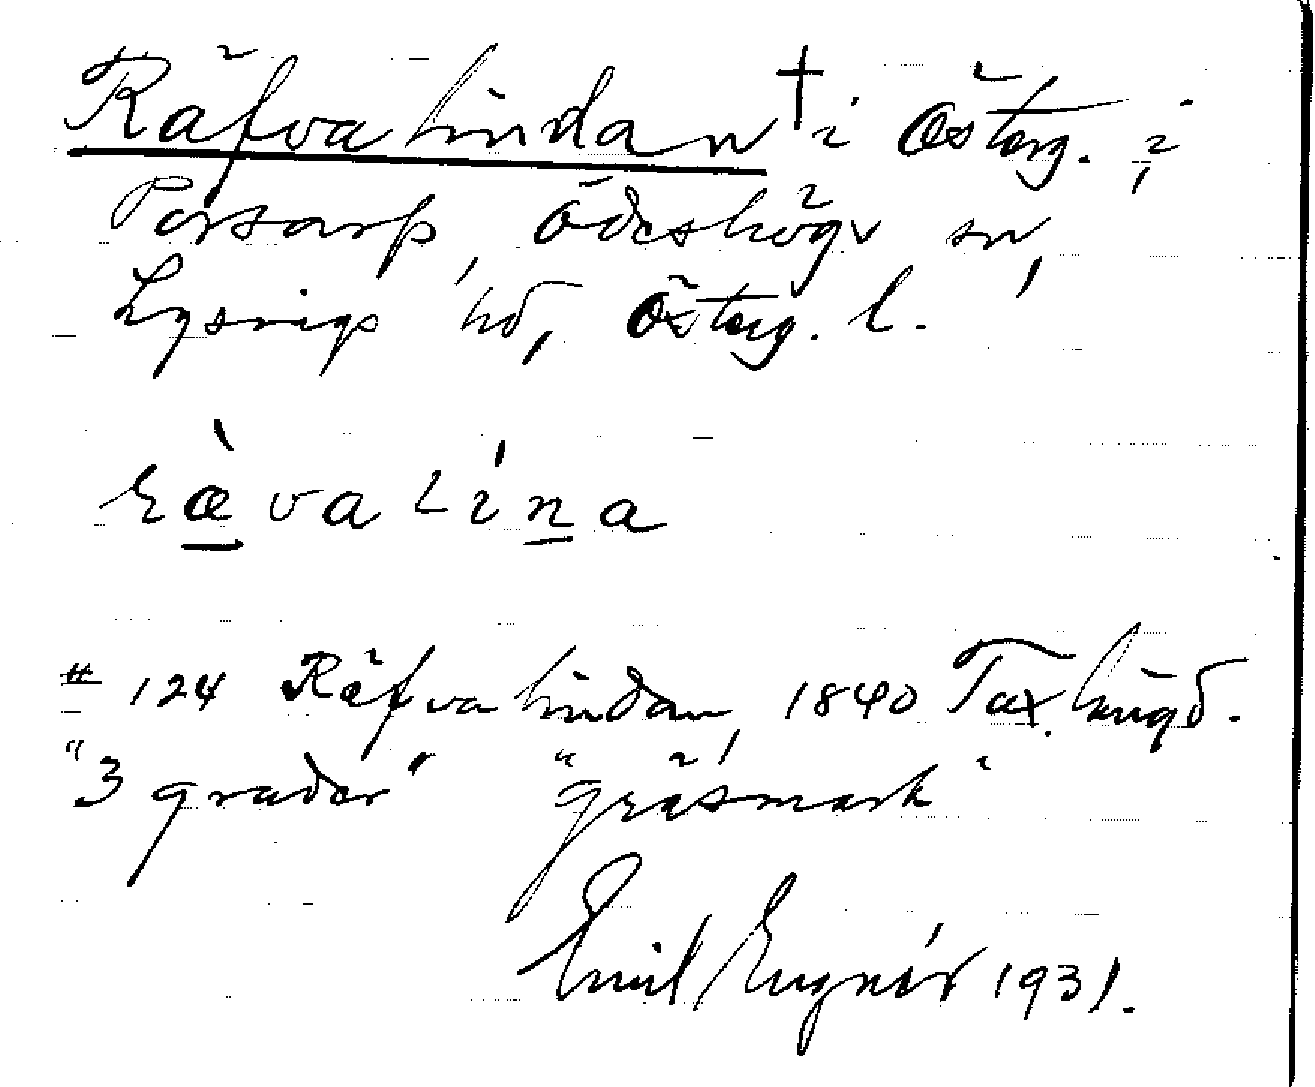 Räfvalindan † i Österg. i
Porsarp, Ödeshögs sn,
Lysings hd, Österg. l.
rævalina
# 124 Räfvalindan, 1840
"3 grader" "gräsmark"
Emil 1931.